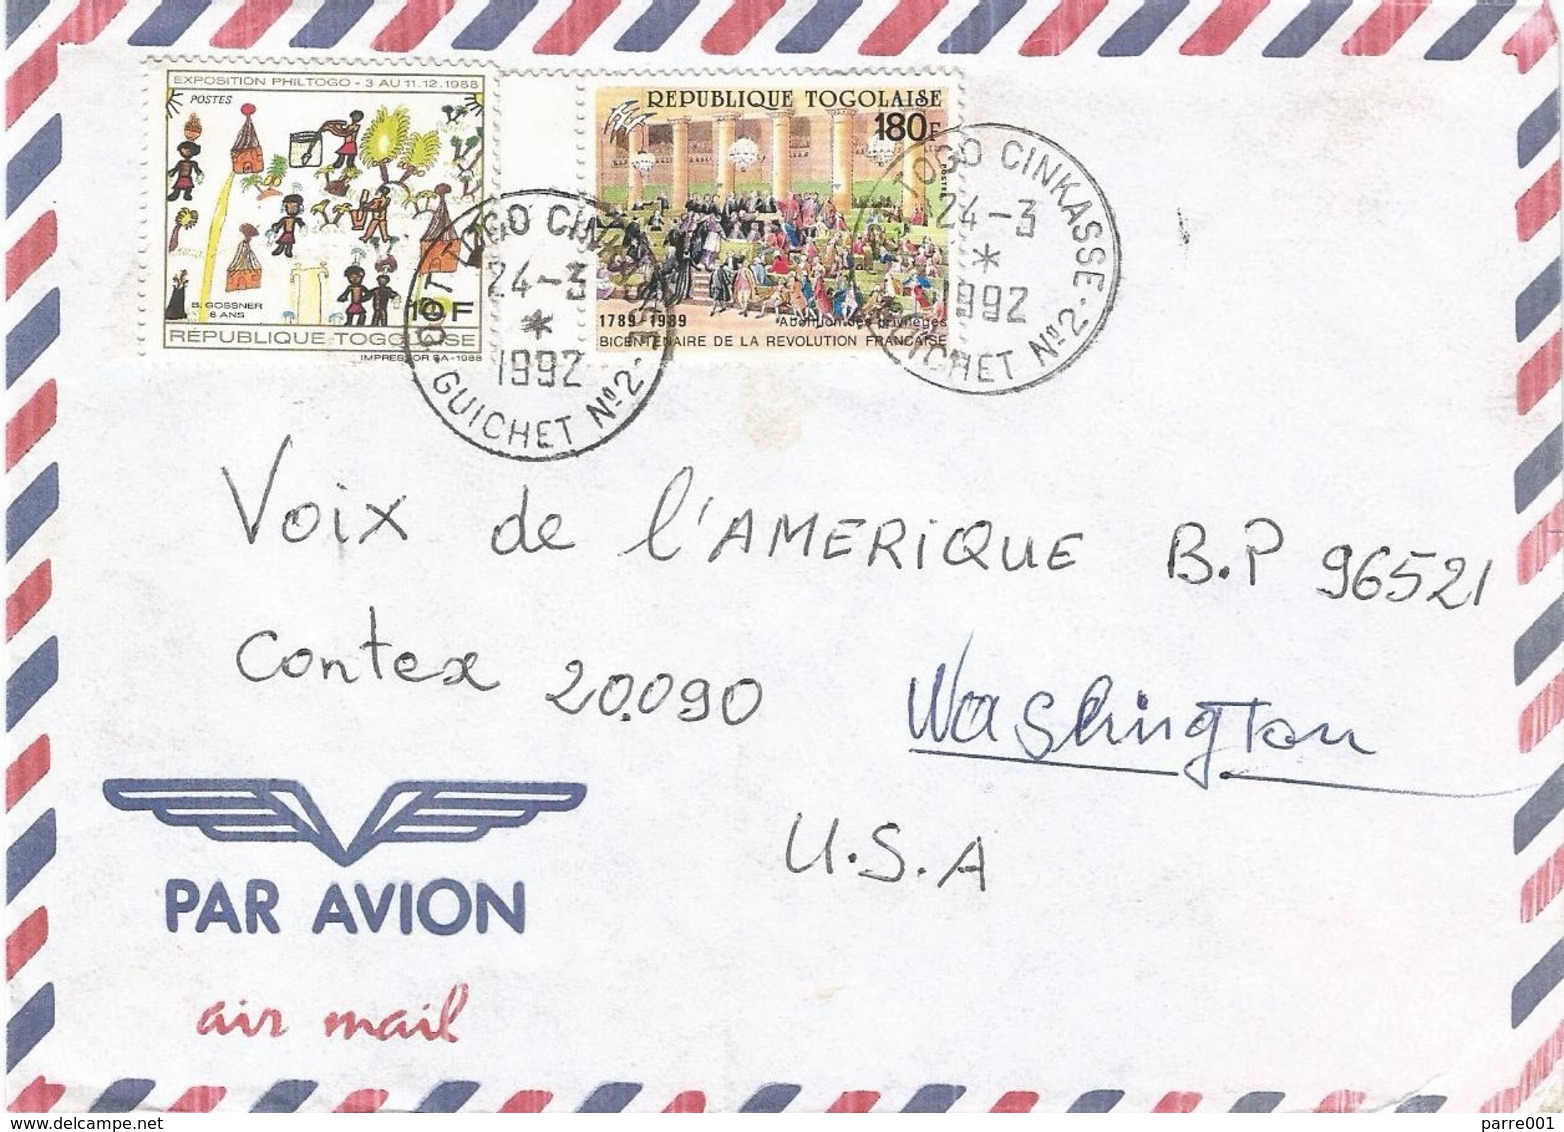 EXPOSITION PHILTOGO - 3 AU 11.12.1988
POSTES
B. GOSSNER
8 ANS
10F
RÉPUBLIQUE TOGOLAISE
IMPRESSOR SA-1988
REPUBLIQUE TOGOLAISE
180F
POSTES
1789-1989
Abolition des privilèges
BICENTENAIRE DE LA REVOLUTION FRANÇAISE
TOGO CINKASSE
24-3
*
1992
GUICHET Nº2
TOGO CINKASSE
24-3
*
1992
GUICHET Nº2
Voix de l'AMERiQUE B.P 96521
Contex 20.090 Washington
U.S.A
PAR AVION
air mail
www.delcampe.net
parre001